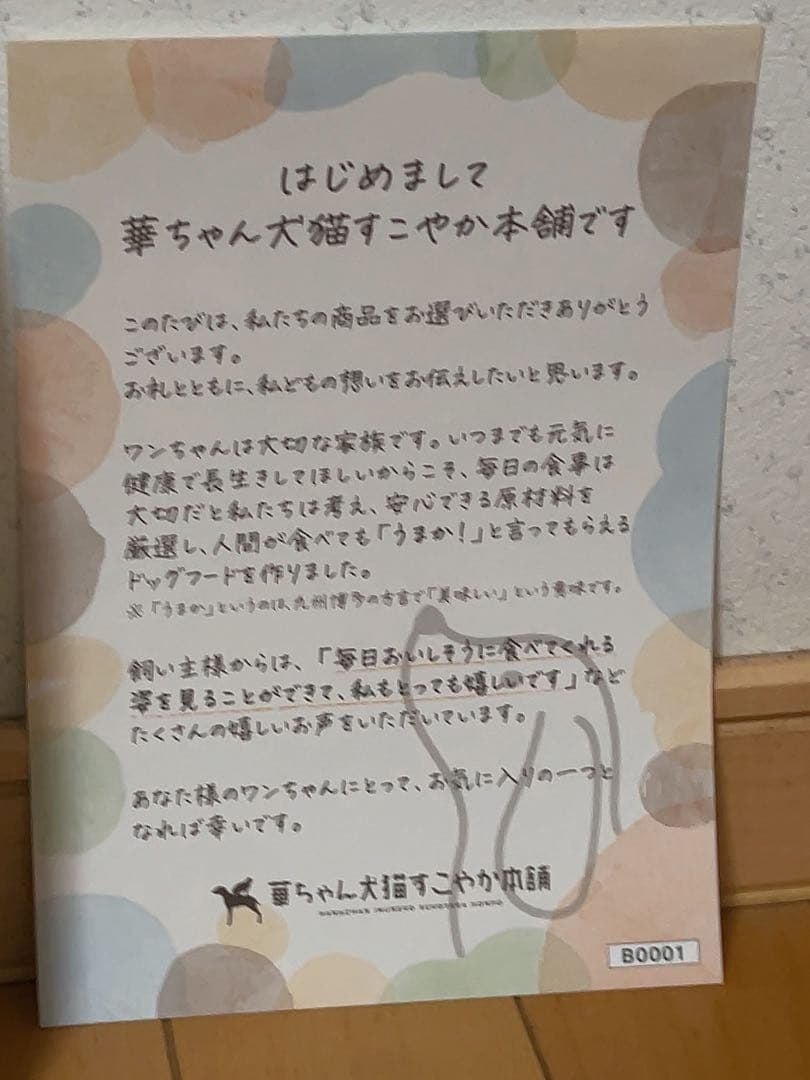 はじめまして
華ちゃん犬猫すこやか本舗です
このたびは、私たちの商品をお選びいただきありがとう
ございます。
お礼とともに、私どもの想いをお伝えしたいと思います。
ワンちゃんは大切な家族です。いつまでも元気に
健康で長生きしてほしいからこそ、毎日の食事は
大切だと私たちは考え、安心できる原材料を
厳選し、人間が食べても「うまか!」と言ってもらえる
ドッグフードを作りました。
※「うまか」というのは、九州博多の方言で「美味しい」という意味です。
飼い主様からは、「毎日おいしそうに食べてくれる
姿を見ることができて、私もとっても嬉しいです」など
たくさんの嬉しいお声をいただいています。
あなた様のワンちゃんにとって、お気に入りの一つと
なれば幸いです。
華ちゃん犬猫すこやか本舗
B0001